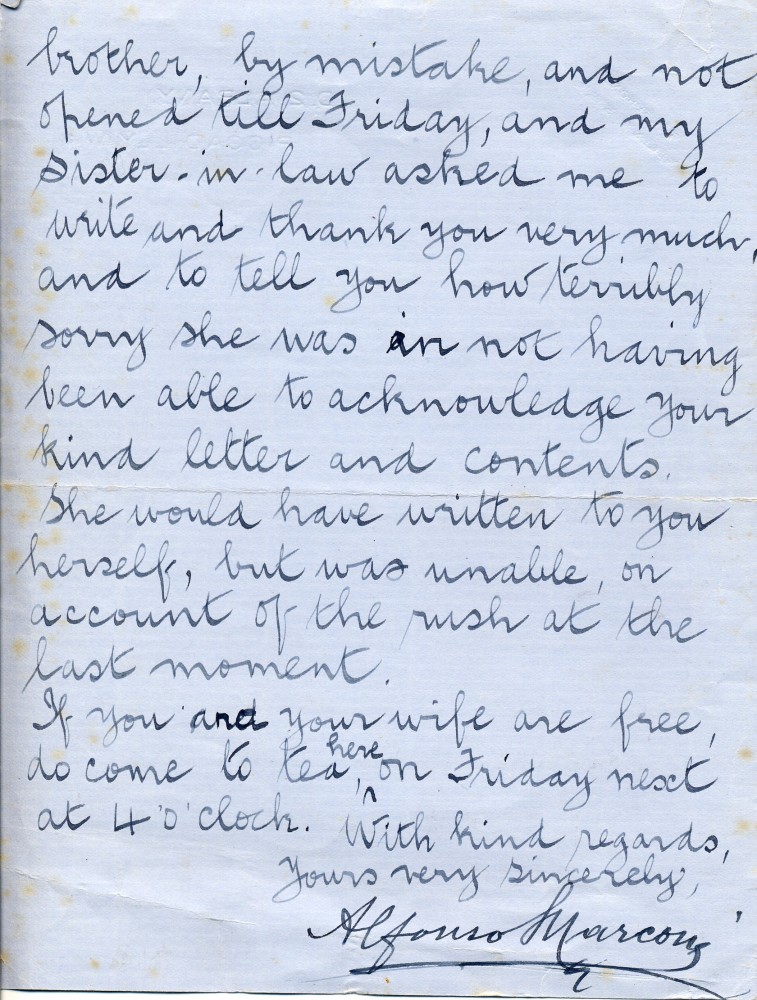 brother, by mistake, and not
opened till Friday, and my
sister-in-law asked me to
write and thank you very much,
and to tell you how terribly
sorry she was in not having
been able to acknowledge your
kind letter and contents.
She would have written to you
herself, but was unable, on
account of the rush at the
last moment.
If you and your wife are free,
do come to tea, here on Friday next
at 4 o'clock. With kind regards,
Yours very sincerely,
Alfonso Marconi